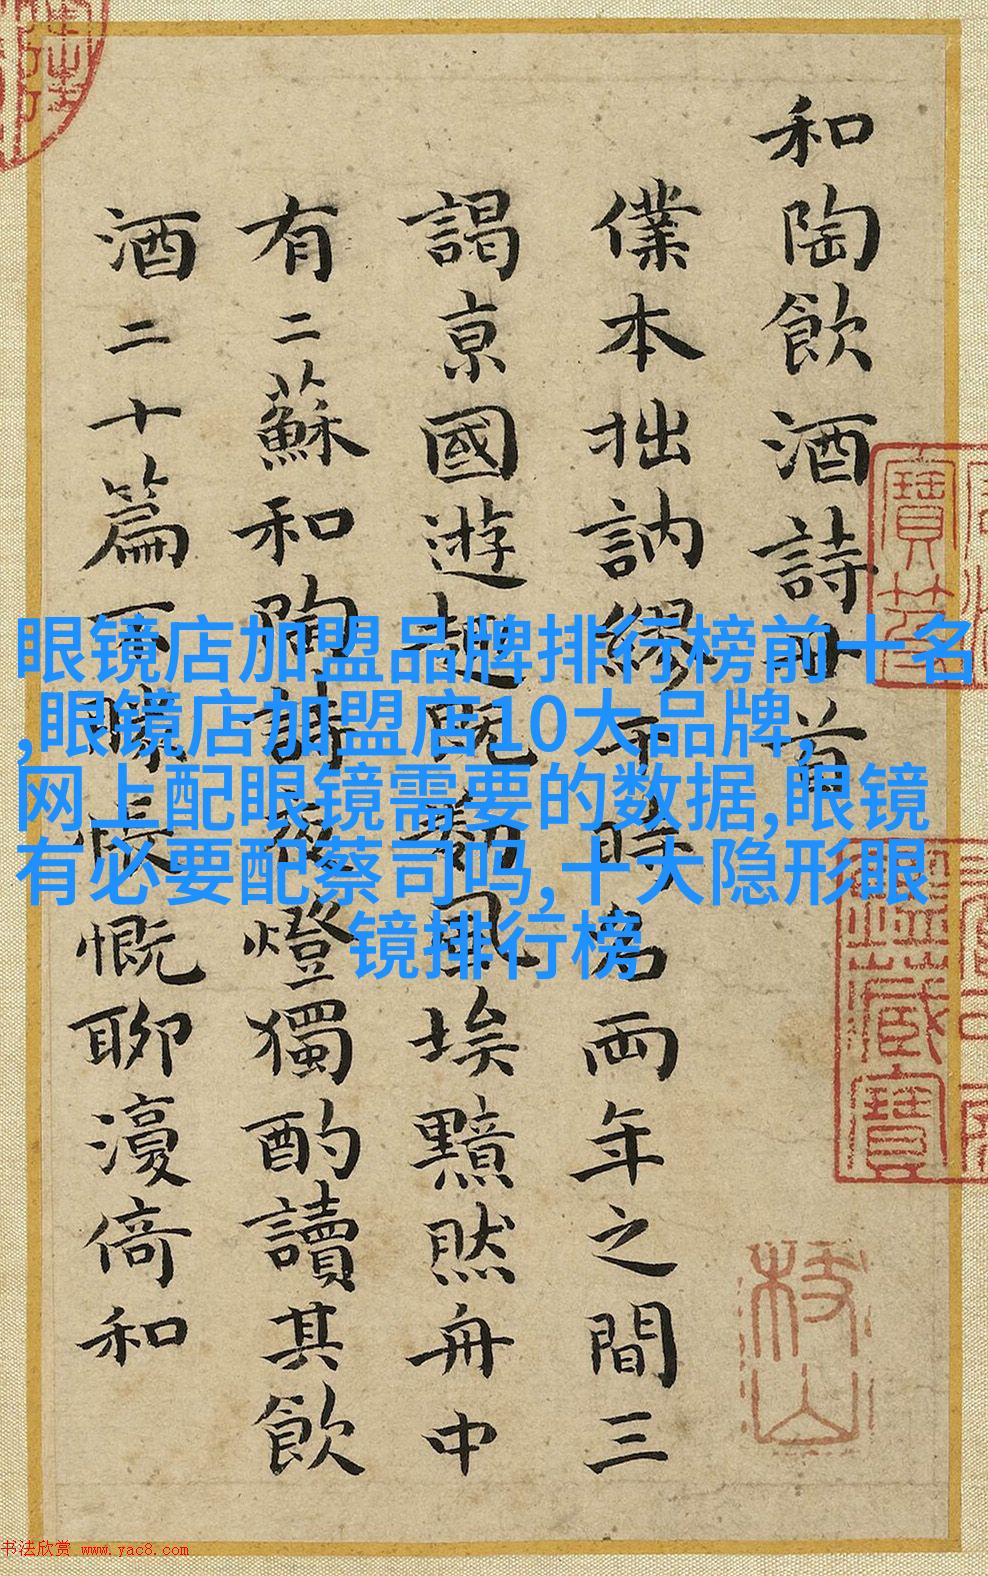 和陶飲酒詩廿首
僕本拙訥繆干時名兩年之間三
謁京國遊趣既風埃黯然舟中
有二蘇和陶詩夜燈獨酌讀其飲
酒二十篇不勝悵慨聊倚和
眼镜店加盟品牌排行榜前十名
,眼镜店加盟店10大品牌,
网上配眼镜需要的数据,眼镜
有必要配蔡司吗,十大隐形眼
镜排行榜
书法欣赏 www.yac8.com